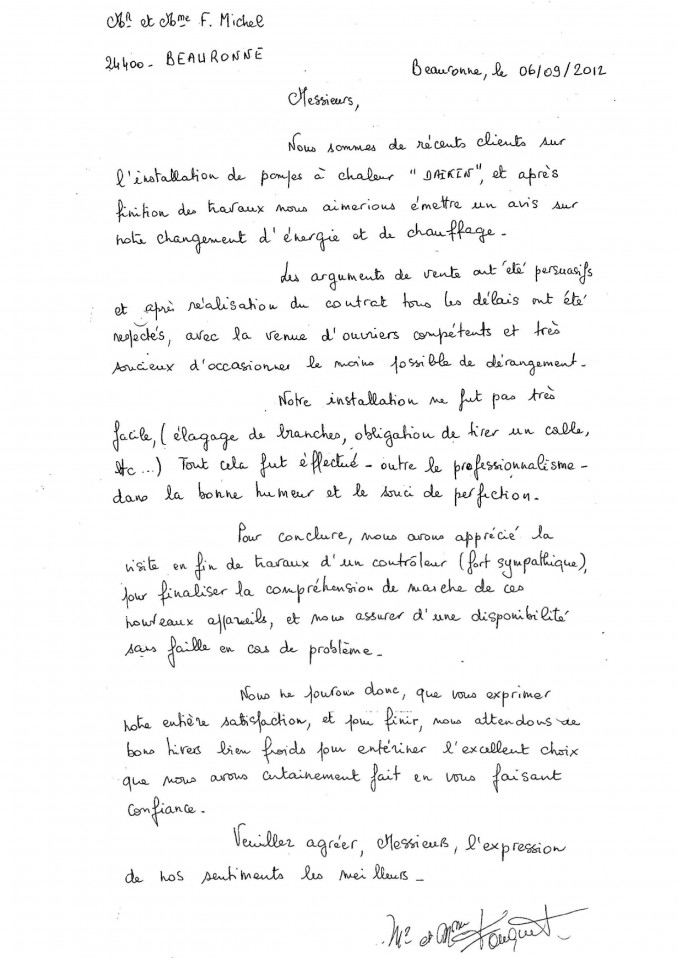 Mr et Mme F. Michel
24400 - BEAURONNE
Beauronne, le 06/09/2012
Messieurs,
Nous sommes de récents clients sur
l'installation de pompes à chaleur "DAIKIN", et après
finition des travaux nous aimerions émettre un avis sur
notre changement d'énergie et de chauffage.
Les arguments de vente ont été persuasifs
et après réalisation du contrat tous les délais ont été
respectés, avec la venue d'ouvriers compétents et très
soucieux d'occasionner le moins possible de dérangement.
Notre installation ne fut pas très
facile, (élagage de branches, obligation de tirer un cable,
etc...) Tout cela fut éffectué - outre le professionnalisme -
dans la bonne humeur et le souci de perfection.
Pour conclure, nous avons apprécié la
visite en fin de travaux d'un contrôleur (fort sympathique),
pour finaliser la compréhension de marche de ces
nouveaux appareils, et nous assurer d'une disponibilité
sans faille en cas de problème.
Nous ne pouvons donc, que vous exprimer
notre entière satisfaction, et pour finir, nous attendons de
bons hivers bien froids pour entériner l'excellent choix
que nous avons certainement fait en vous faisant
confiance.
Veuillez agréer, Messieurs, l'expression
de nos sentiments les meilleurs -
Mr et Mme Fouquet